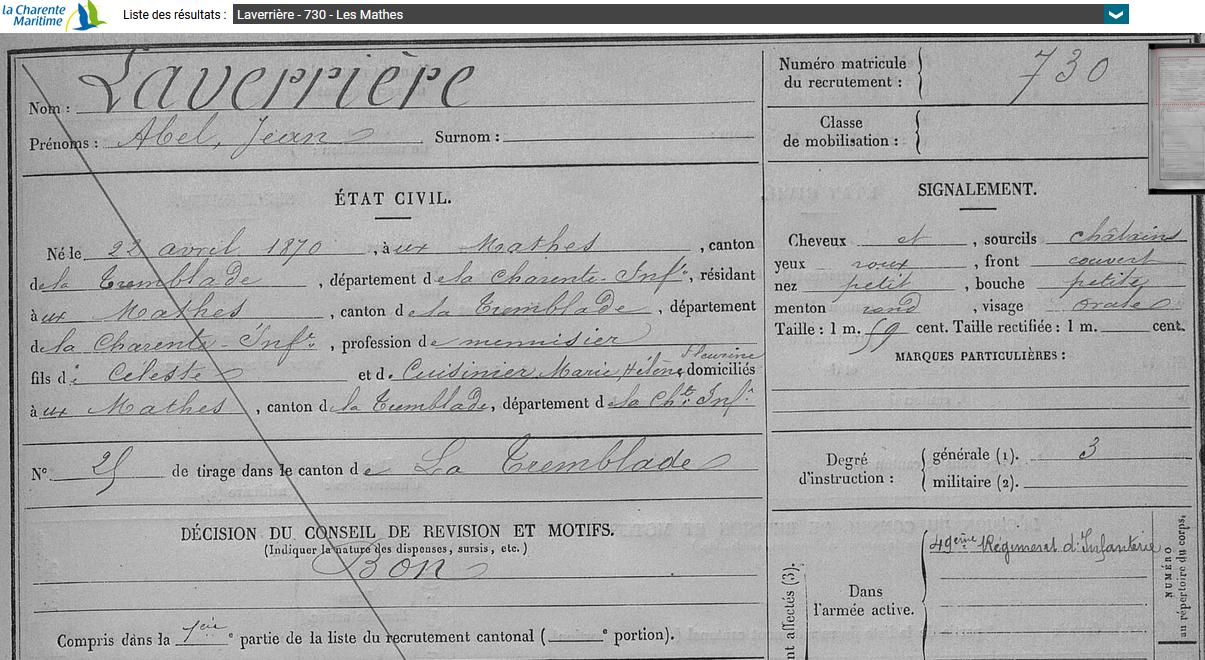 la Charente Maritime
Liste des résultats : Laverrière - 730 - Les Mathes
Nom : Laverrière
Prénoms : Abel, Jean Surnom :
Numéro matricule du recrutement : 730
Classe de mobilisation :
ÉTAT CIVIL.
Né le 22 avril 1870, à ux Mathes, canton
de la Tremblade, département de la Charente-Infre, résidant
à ux Mathes, canton de la Tremblade, département
de la Charente-Infre, profession de menuisier
fils de Céleste et de Cuisinier Marie, Hélène Fleurine domiciliés
à ux Mathes, canton de la Tremblade, département de la Chte Infre
No 25 de tirage dans le canton de La Tremblade
DÉCISION DU CONSEIL DE REVISION ET MOTIFS.
(Indiquer la nature des dispenses, sursis, etc.)
Bon
Compris dans la 1ère e partie de la liste du recrutement cantonal ( e portion).
SIGNALEMENT.
Cheveux et, sourcils châtains
yeux roux, front couvert
nez petit, bouche petite
menton rond, visage ovale
Taille : 1 m. 59 cent. Taille rectifiée : 1 m. cent.
MARQUES PARTICULIÈRES :
Degré d'instruction : générale (1). 3
militaire (2).
nt affectés (3).
Dans l'armée active.
49ème Régiment d'Infanterie
NUMÉRO au répertoire du corps.